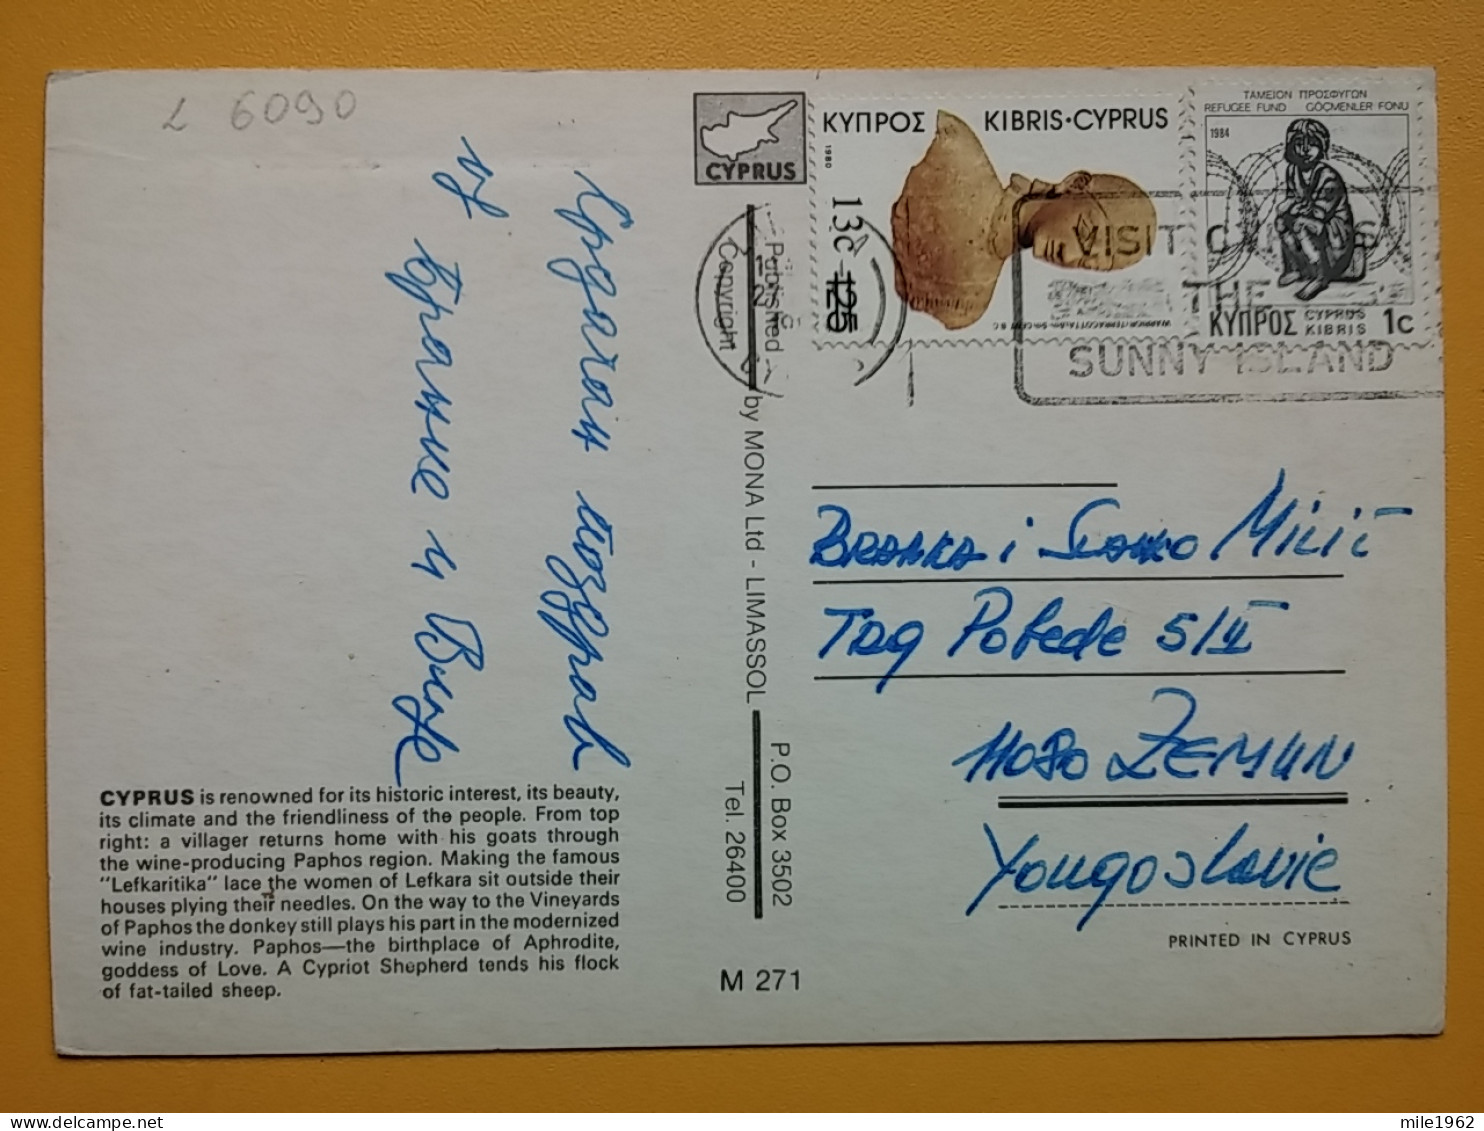 L 6090
Срдачан поздрав
од Бранке и
CYPRUS is renowned for its historic interest, its beauty,
its climate and the friendliness of the people. From top
right: a villager returns home with his goats through
the wine-producing Paphos region. Making the famous
"Lefkaritika" lace the women of Lefkara sit outside their
houses plying their needles. On the way to the Vineyards
of Paphos the donkey still plays his part in the modernized
wine industry. Paphos—the birthplace of Aphrodite,
goddess of Love. A Cypriot Shepherd tends his flock
of fat-tailed sheep.
CYPRUS
Published by MONA Ltd - LIMASSOL P.O. Box 3502
Copyright Tel. 26400
M 271
ΚΥΠΡΟΣ KIBRIS·CYPRUS
1980
13c
125
ΤΑΜΕΙΟΝ ΠΡΟΣΦΥΓΩΝ
REFUGEE FUND GÖÇMENLER FONU
1984
ΚΥΠΡΟΣ CYPRUS KIBRIS 1c
VISIT CYPRUS
THE
SUNNY ISLAND
BRANKA i SLAVKO MILIĆ
TRG Pobede 5/II
NOVO ZEMUN
Yougoslavie
PRINTED IN CYPRUS
mile1962